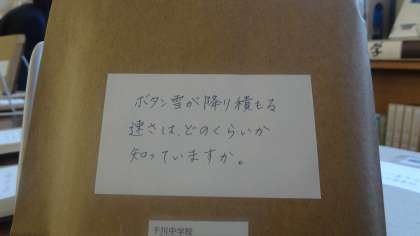 ボタン雪が降り積もる
速さは、どのくらいか
知っていますか。
千川中学校